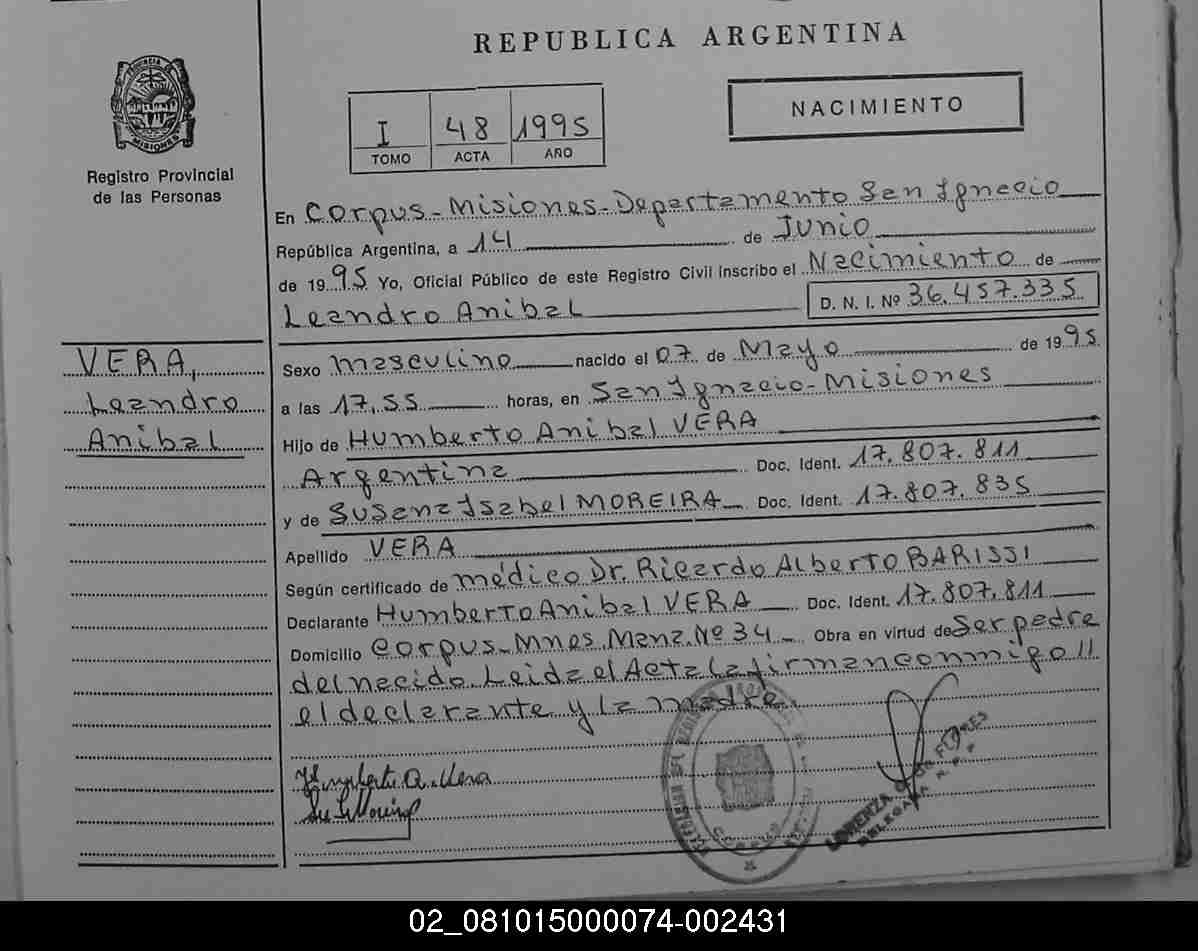 REPUBLICA ARGENTINA
PROVINCIA DE MISIONES
Registro Provincial
de las Personas
I 48 1995
TOMO ACTA AÑO
NACIMIENTO
En Corpus-Misiones-Departamento San Ignacio
República Argentina, a 14 de Junio
de 1995 Yo, Oficial Público de este Registro Civil inscribo el Nacimiento de
Leandro Anibal D. N. I. Nº 36.457.335
VERA,
Leandro
Anibal
Sexo masculino nacido el 07 de Mayo de 1995
a las 17,55 horas, en San Ignacio-Misiones
Hijo de Humberto Anibal VERA
Argentina Doc. Ident. 17.807.811
y de Susana Isabel MOREIRA Doc. Ident. 17.807.835
Apellido VERA
Según certificado de médico Dr. Ricardo Alberto BARISSI
Declarante Humberto Anibal VERA Doc. Ident. 17.807.811
Domicilio Corpus-Mnes. Manz. Nº 34 Obra en virtud de Ser padre
del nacido. Leida el Acta la firman conmigo //
el declarante y la madre.
Humberto A. Vera
FLORES
DELEGADA
02_081015000074-002431